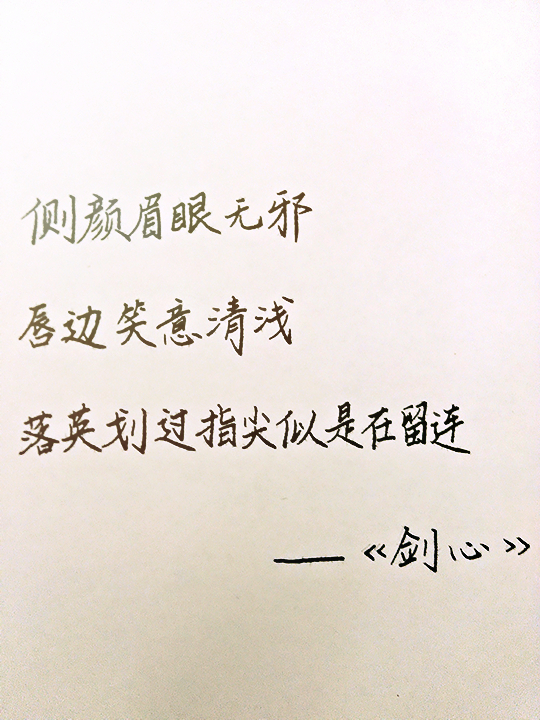 侧颜眉眼无邪
唇边笑意清浅
落英划过指尖似是在留连
——《剑心》